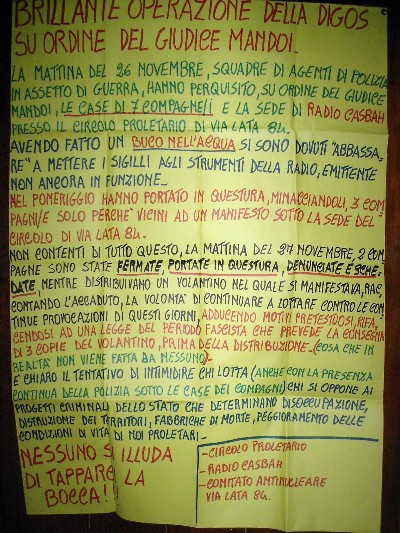 BRILLANTE OPERAZIONE DELLA DIGOS
SU ORDINE DEL GIUDICE MANDOI.
LA MATTINA DEL 26 NOVEMBRE, SQUADRE DI AGENTI DI POLIZIA
IN ASSETTO DI GUERRA, HANNO PERQUISITO, SU ORDINE DEL GIUDICE
MANDOI, LE CASE DI 7 COMPAGNE/I E LA SEDE DI RADIO CASBAH
PRESSO IL CIRCOLO PROLETARIO DI VIA LATA 84.
AVENDO FATTO UN BUCO NELL'ACQUA SI SONO DOVUTI "ABBASSA-
RE" A METTERE I SIGILLI AGLI STRUMENTI DELLA RADIO, EMITTENTE
NON ANCORA IN FUNZIONE.
NEL POMERIGGIO HANNO PORTATO IN QUESTURA, MINACCIANDOLI, 3 COM-
PAGNI/E SOLO PERCHE' VICINI AD UN MANIFESTO SOTTO LA SEDE DEL
CIRCOLO DI VIA LATA 84.
NON CONTENTI DI TUTTO QUESTO, LA MATTINA DEL 27 NOVEMBRE, 2 COM-
PAGNE SONO STATE FERMATE, PORTATE IN QUESTURA, DENUNCIATE E SCHE-
DATE, MENTRE DISTRIBUIVANO UN VOLANTINO NEL QUALE SI MANIFESTAVA, RAC-
CONTANDO L'ACCADUTO, LA VOLONTÀ DI CONTINUARE A LOTTARE CONTRO LE CON-
TINUE PROVOCAZIONI DI QUESTI GIORNI, ADDUCENDO MOTIVI PRETESTUOSI, RIFA-
CENDOSI AD UNA LEGGE DEL PERIODO FASCISTA CHE PREVEDE LA CONSEGNA
DI 3 COPIE DEL VOLANTINO, PRIMA DELLA DISTRIBUZIONE - (COSA CHE IN
REALTA' NON VIENE FATTA DA NESSUNO).
E' CHIARO IL TENTATIVO DI INTIMIDIRE CHI LOTTA (ANCHE CON LA PRESENZA
CONTINUA DELLA POLIZIA SOTTO LE CASE DEI COMPAGNI) CHI SI OPPONE AI
PROGETTI CRIMINALI DELLO STATO CHE DETERMINANO DISOCCUPAZIONE,
DISTRUZIONE DEI TERRITORI, FABBRICHE DI MORTE, PEGGIORAMENTO DELLE
CONDIZIONI DI VITA DI NOI PROLETARI.
NESSUNO SI ILLUDA
DI TAPPARCI LA
BOCCA!!
- CIRCOLO PROLETARIO
- RADIO CASBAH
- COMITATO ANTINUCLEARE
VIA LATA 84.